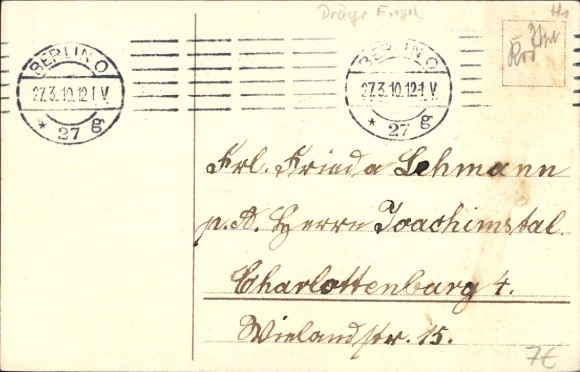 Dräge Engel
BERLIN O
27.3.10.12-1 V.
* 27 g
BERLIN O
27.3.10.12-1 V.
* 27 g
Frl. Frieda Lehmann
p. A. Herrn Joachimstal.
Charlottenburg 4.
Wielandstr. 15.
7€